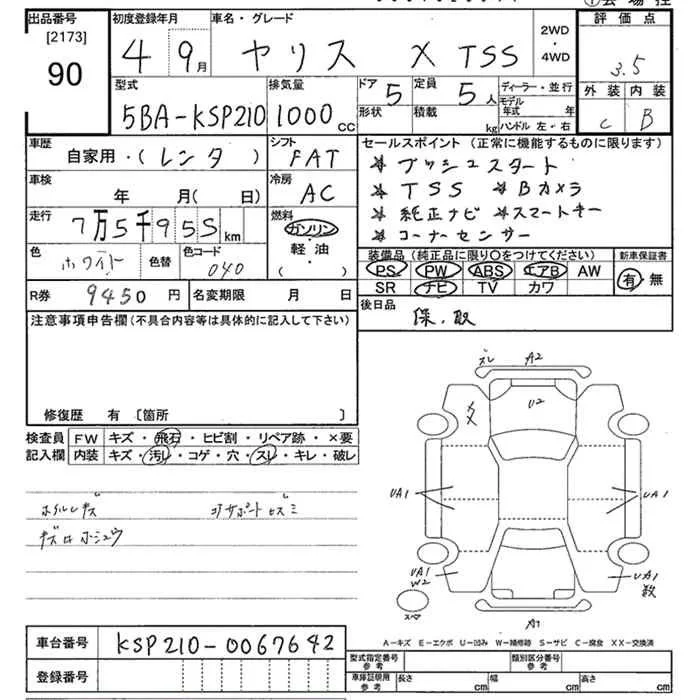 出品番号 初度登録年月 車名・グレード 2WD ・ 4WD 評価点
[2173] 90 4 9月 ヤリス X TSS 3.5
型式 排気量 ドア 5 定員 5人 ディーラー・並行 外装 内装
5BA-KSP210 1000cc 形状 積載 kg モデル年式 年 C B
ハンドル 左・右
車歴 自家用・(レンタ) シフト FAT セールスポイント(正常に機能するものに限ります)
プッシュスタート
車検 年 月(日) 冷房 AC TSS Bカメラ
純正ナビ スマートキー
走行 7万5千955km 燃料 ガソリン・軽油 ( ) コーナーセンサー
色 ホワイト 色替 色コード 040
装備品(純正品に限り○をつけてください) 新車保証書
PS PW ABS エアB AW 有・無
SR ナビ TV カワ
R券 9450円 名変期限 月 日 後日品
保.取
注意事項申告欄(不具合内容等は具体的に記入して下さい)
修復歴 有〔箇所 〕
検査員記入欄 FW キズ・飛石・ヒビ割・リペア跡・×要
内装 キズ・汚レ・コゲ・穴・スレ・キレ・破レ
ズレ A2
U2
UA1 UA1
UA1 W2 UA1
スペア A1
ホイルキズ
A-キズ E-エクボ U-凹み W-補修跡 S-サビ C-腐食 XX-交換済
車台番号 KSP210-0067642
登録番号
型式指定番号 参考 類別区分番号 参考
車庫証明用 参考 長さ cm 幅 cm 高さ cm